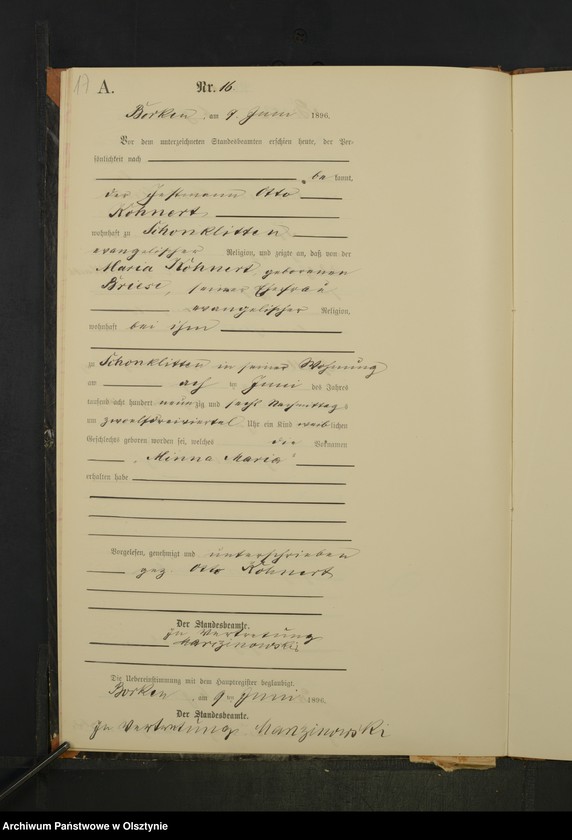 17
A.
Nr. 16
Borken, am 9. Juni 1896.
Vor dem unterzeichneten Standesbeamten erschien heute, der Per-
sönlichkeit nach
be kannt,
der Otto
Kohnert
wohnhaft zu Schönklitten
evangelischer Religion, und zeigte an, daß von der
Maria Kohnert geborenen
Briese, seiner Ehefrau
evangelischer Religion,
wohnhaft bei ihm
zu Schönklitten in seiner Wohnung
am acht ten Juni des Jahres
tausend acht hundert neunzig und sechs Nachmittags
um zwoelfdreiviertel Uhr ein Kind weiblichen
Geschlechts geboren worden sei, welches die Vornamen
„Minna Maria"
erhalten habe
Vorgelesen, genehmigt und unterschrieben
gez. Otto Kohnert
Der Standesbeamte.
In Vertretung
Marzinowski
Die Uebereinstimmung mit dem Hauptregister beglaubigt.
Borken, am 9 ten Juni 1896.
Der Standesbeamte.
In Vertretung Marzinowski
Archiwum Państwowe w Olsztynie